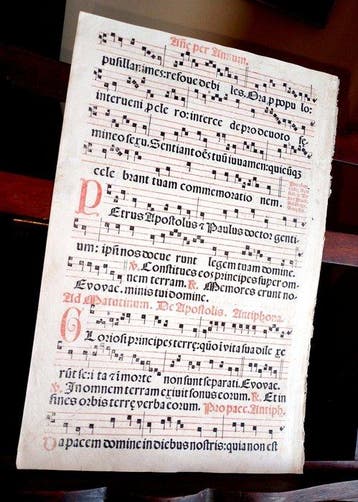 Añe per Annum.
pusillanimes: refove debi les. Ora p popu lo:
interveni p cle ro: interce de pro devoto fe
mineo sexu. Sentiant oẽs tuũ iuvamen: quicũq̃
cele brant tuam commemoratio nem.
PEtrus Apostolus & Paulus doctor genti
um: ipsi nos docue runt legem tuam domine.
℣. Constitues eos principes super om-
nem terram. ℟. Memores erunt no-
Evovae. minis tui domine.
Ad Matutinum. De Apostolis. Antiphona.
GLoriosi principes terrę: quõ i vita sua dile xe
rũt se: i ta & i morte non sunt separati. Evovae.
℣. In omnem terram exivit sonus eorum. ℟. Et in
fines orbis terrę verba eorum. Pro pace. Antiph.
Da pacem domine in diebus nostris: quia non est